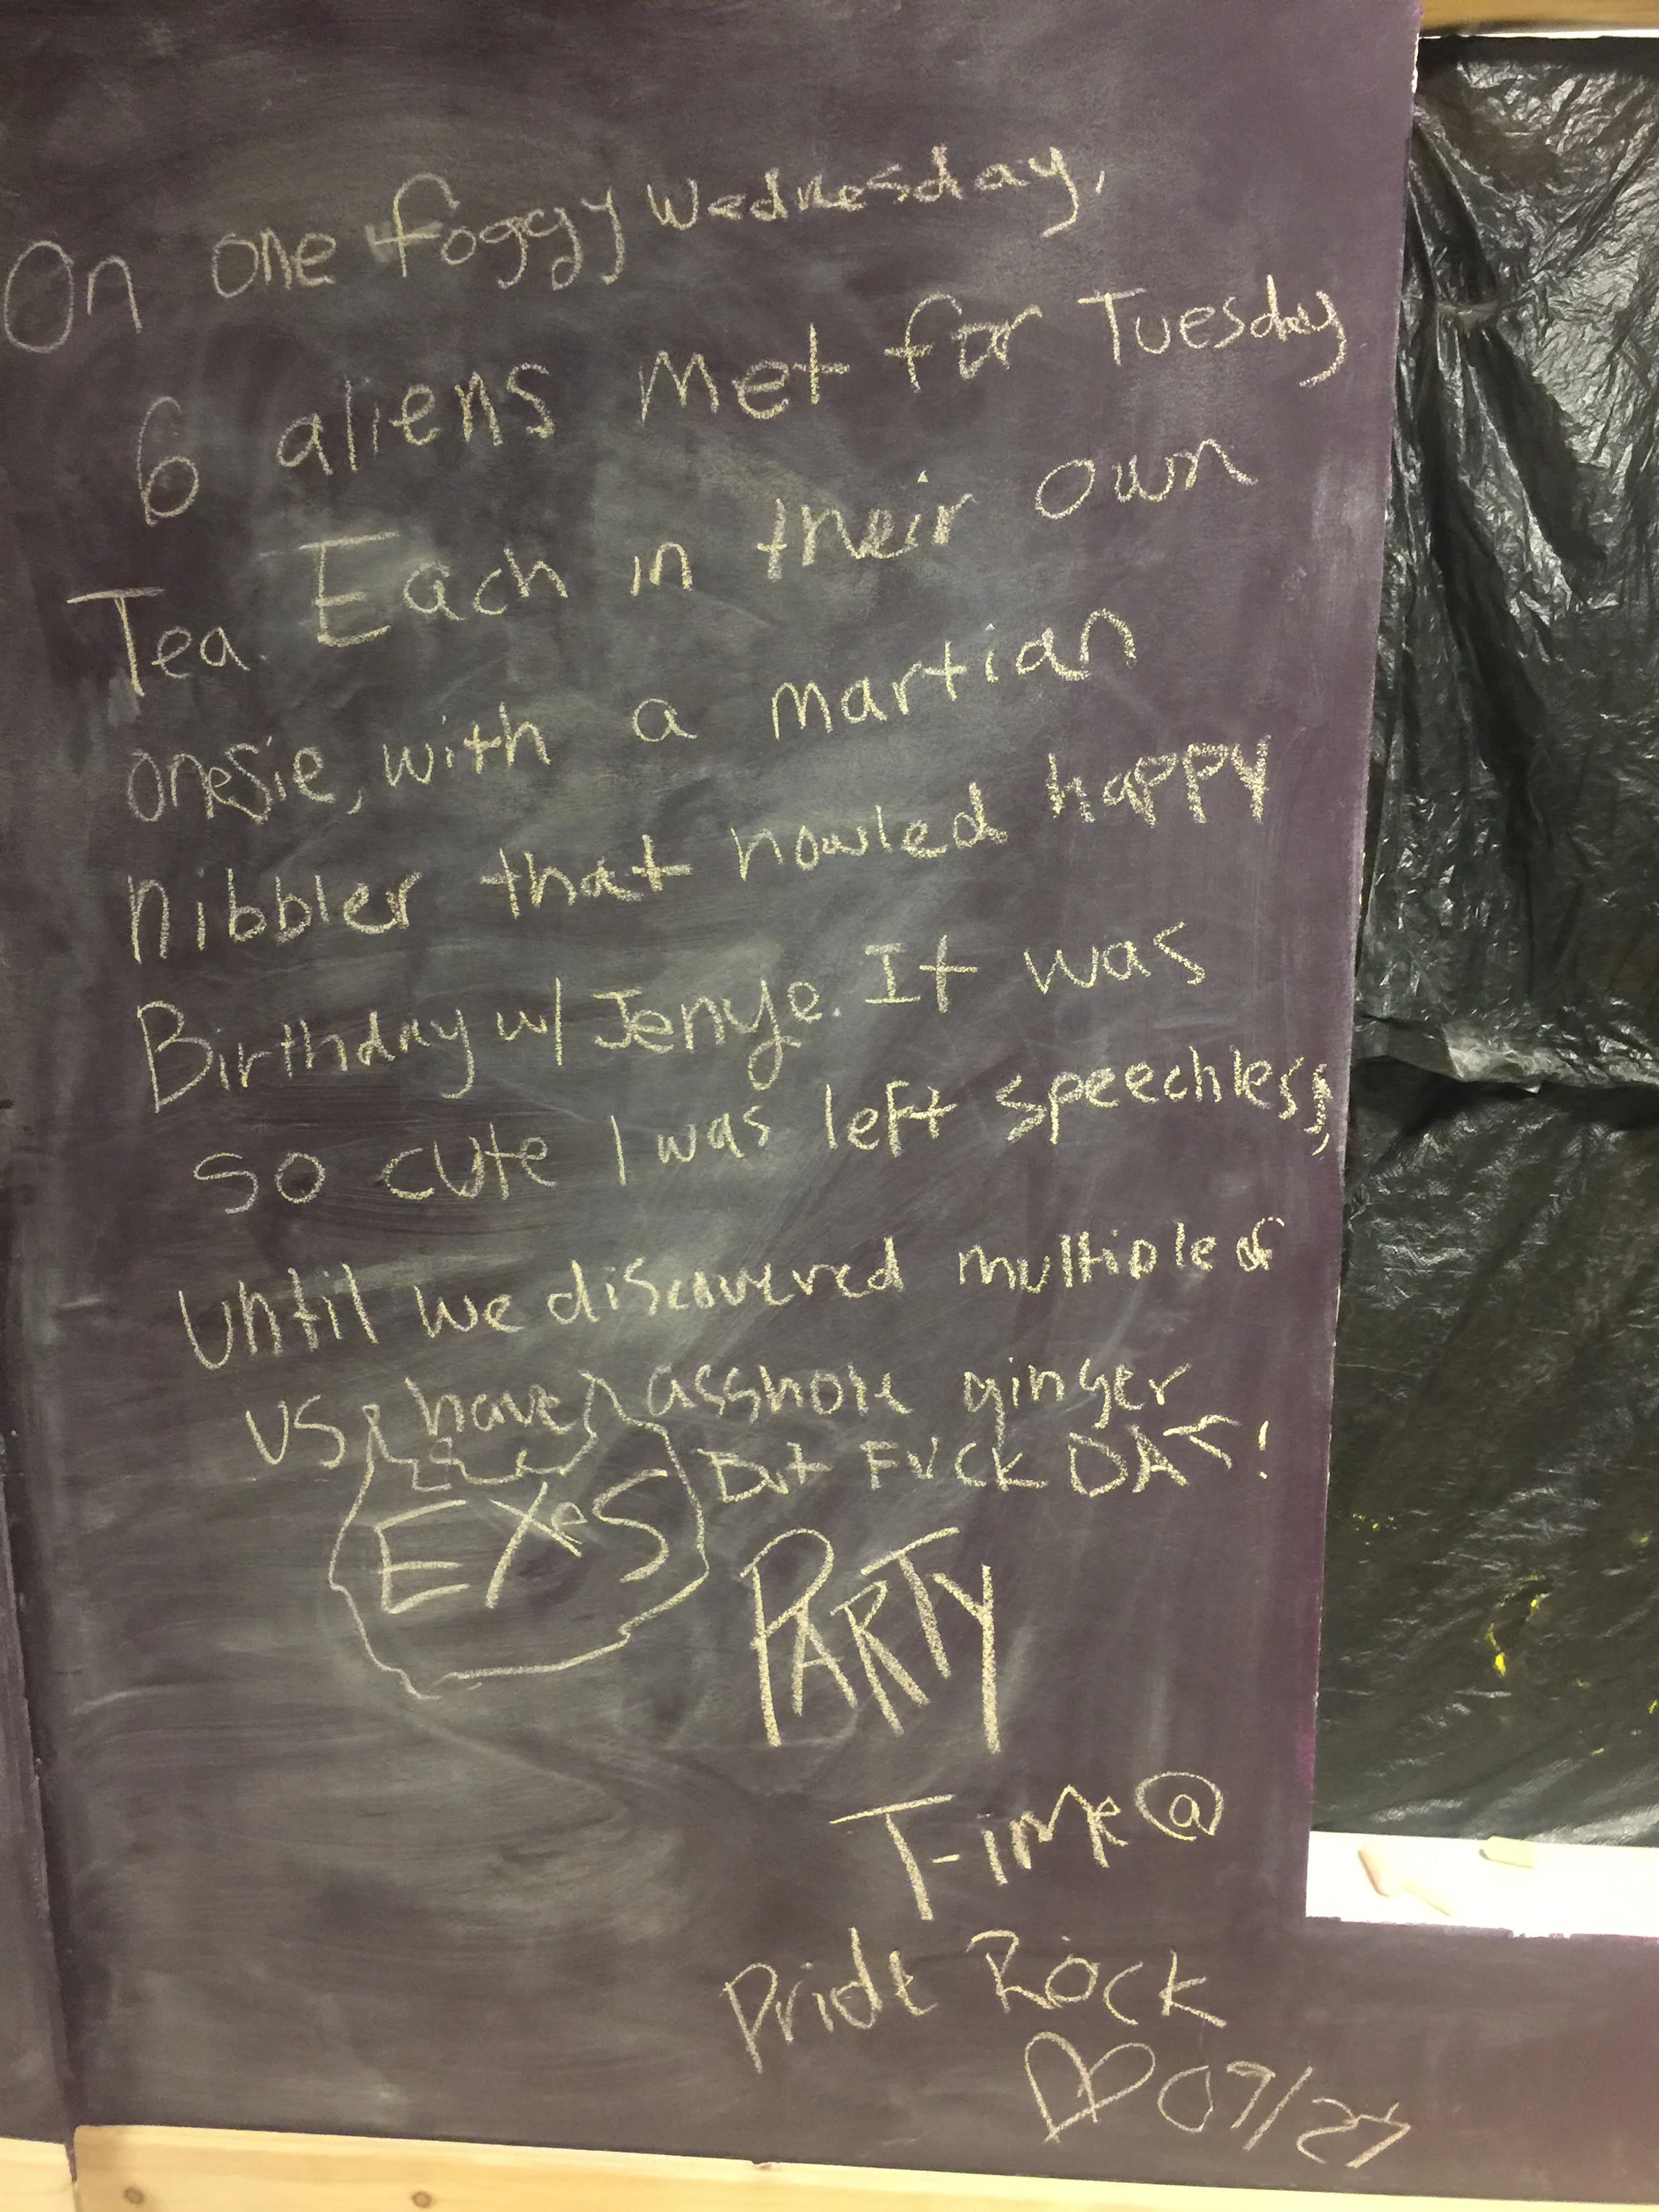 On one foggy Wednesday,
6 aliens met for Tuesday
Tea. Each in their own
onesie, with a martian
nibbler that howled happy
Birthday w/ Jenye. It was
so cute I was left speechless,
until we discovered multiple of
us have asshole ginger
EXeS But FUCK DAT!
PARTY
Time @
Pride Rock
♡ 07/27